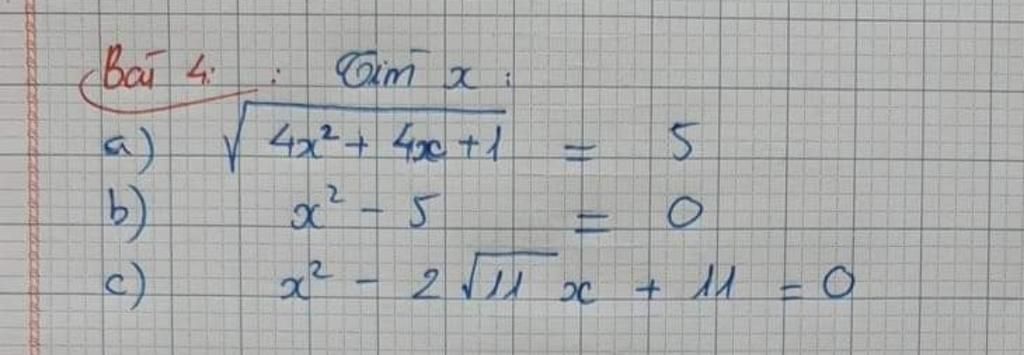 Bài 4: : Tìm x :
a) √(4x² + 4x + 1) = 5
b) x² - 5 = 0
c) x² - 2√11 x + 11 = 0